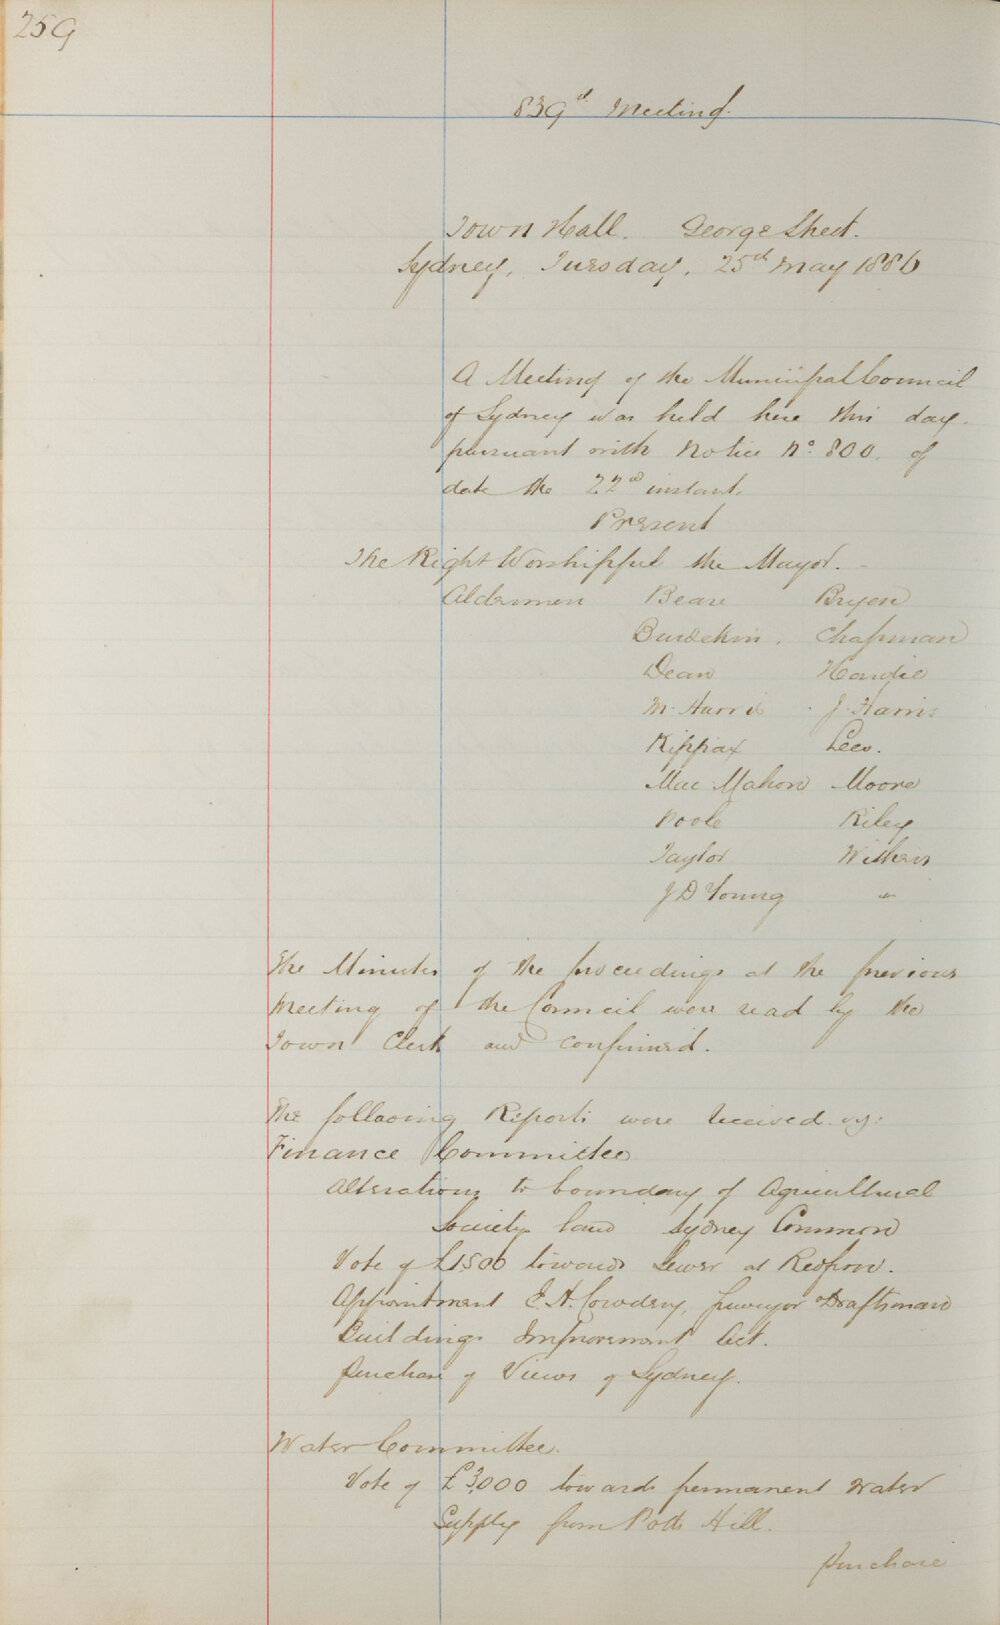 259
839th Meeting.
Town Hall. George Street.
Sydney, Tuesday, 25th May 1886
A Meeting of the Municipal Council
of Sydney was held here this day
pursuant with Notice No. 800, of
date the 22nd instant.
Present
The Right Worshipful the Mayor.
Aldermen Beare Bryen
Burdekin. Chapman
Dean Hardie
M. Harris J. Harris
Kippax Lees.
Mac Mahon Moore
Poole Riley
Taylor Withers
J D Young "
The Minutes of the proceedings at the previous
Meeting of the Council were read by the
Town Clerk and confirmed.
The following Reports were received. vz:
Finance Committee
Alterations to boundary of Agricultural
Society's land Sydney Common
Vote of £1500 towards Sewer at Redfern.
Appointment E. H. Cowdery, Surveyor & Draftsman
Buildings Improvement Act.
Purchase of Views of Sydney.
Water Committee.
Vote of £3,000 towards permanent Water
Supply from Potts Hill.
Purchase